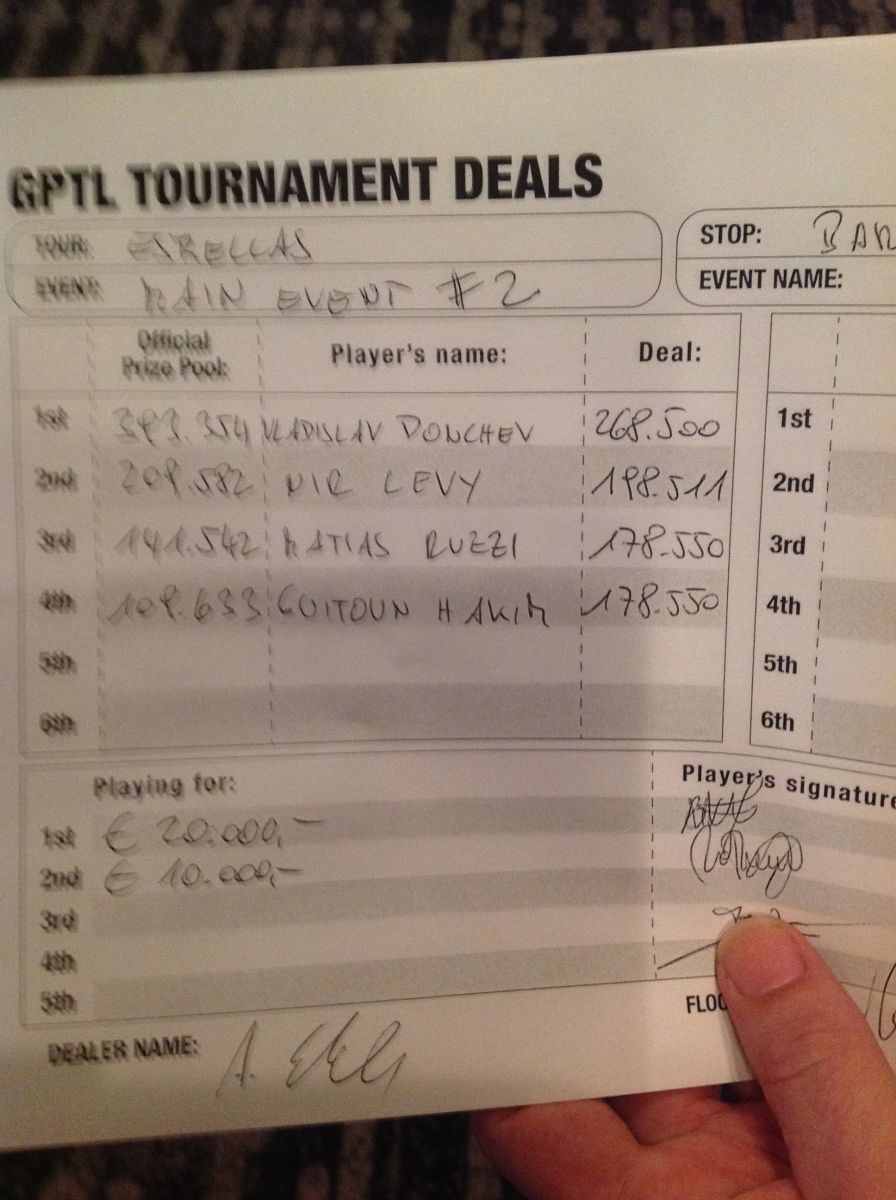 GPTL TOURNAMENT DEALS
TOUR: ESRELLAS
EVENT: MAIN EVENT #2
STOP: BAR
EVENT NAME:
Official Prize Pool: Player's name: Deal:
1st 393.354 VLADISLAV DONCHEV 268.500
2nd 209.582 NIR LEVY 198.511
3rd 141.542 MATIAS RUZZI 178.550
4th 109.633 GUITOUN HAKIM 178.550
5th
6th
1st
2nd
3rd
4th
5th
6th
Playing for: Player's signature
1st € 20.000,-
2nd € 10.000,-
3rd
4th
5th
DEALER NAME: A.
FLOO